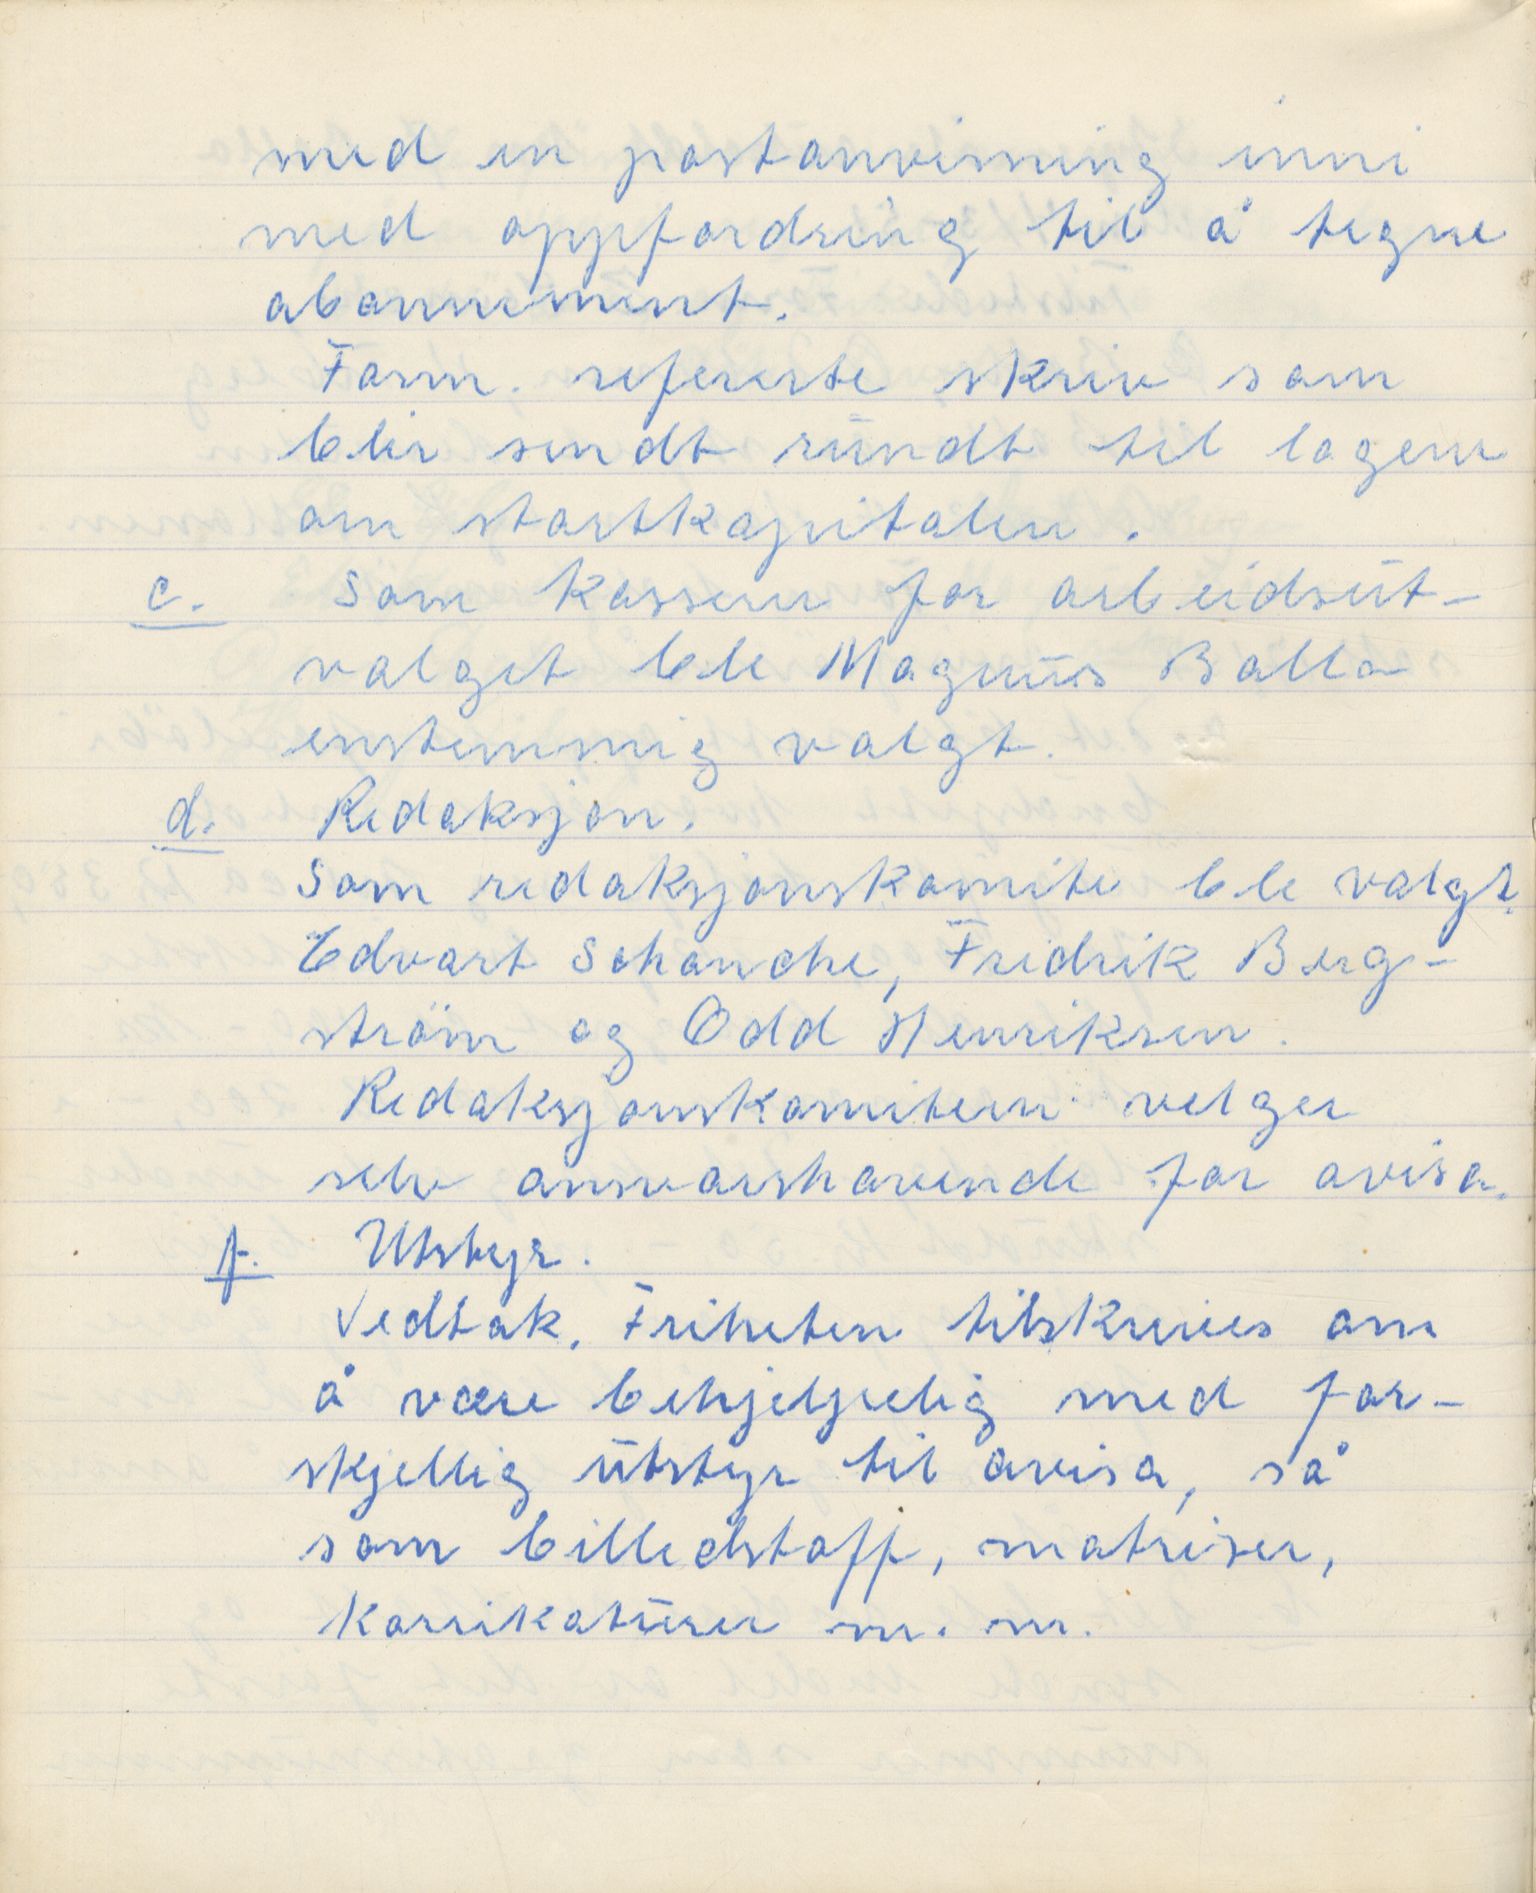 med en postanvisning inni
med oppfordring til å tegne
abonnement.
Form. refererte skriv som
blir sendt rundt til lagene
om startkapitalen.
c. Som kasserer for arbeidsut-
valget ble Magnus Balla
enstemmig valgt.
d. Redaksjon.
Som redaksjonskomite ble valgt.
Edvart Schanche, Fredrik Berg-
ström og Odd Henriksen.
Redaksjonskomiteen velger
selv annsvarshavende for avisa.
f. Utstyr.
Vedtak. Friheten tilskrives om
å være behjelpelig med for-
skjellig utstyr til avisa, så
som billedstoff, matriser,
karrikaturer m. m.